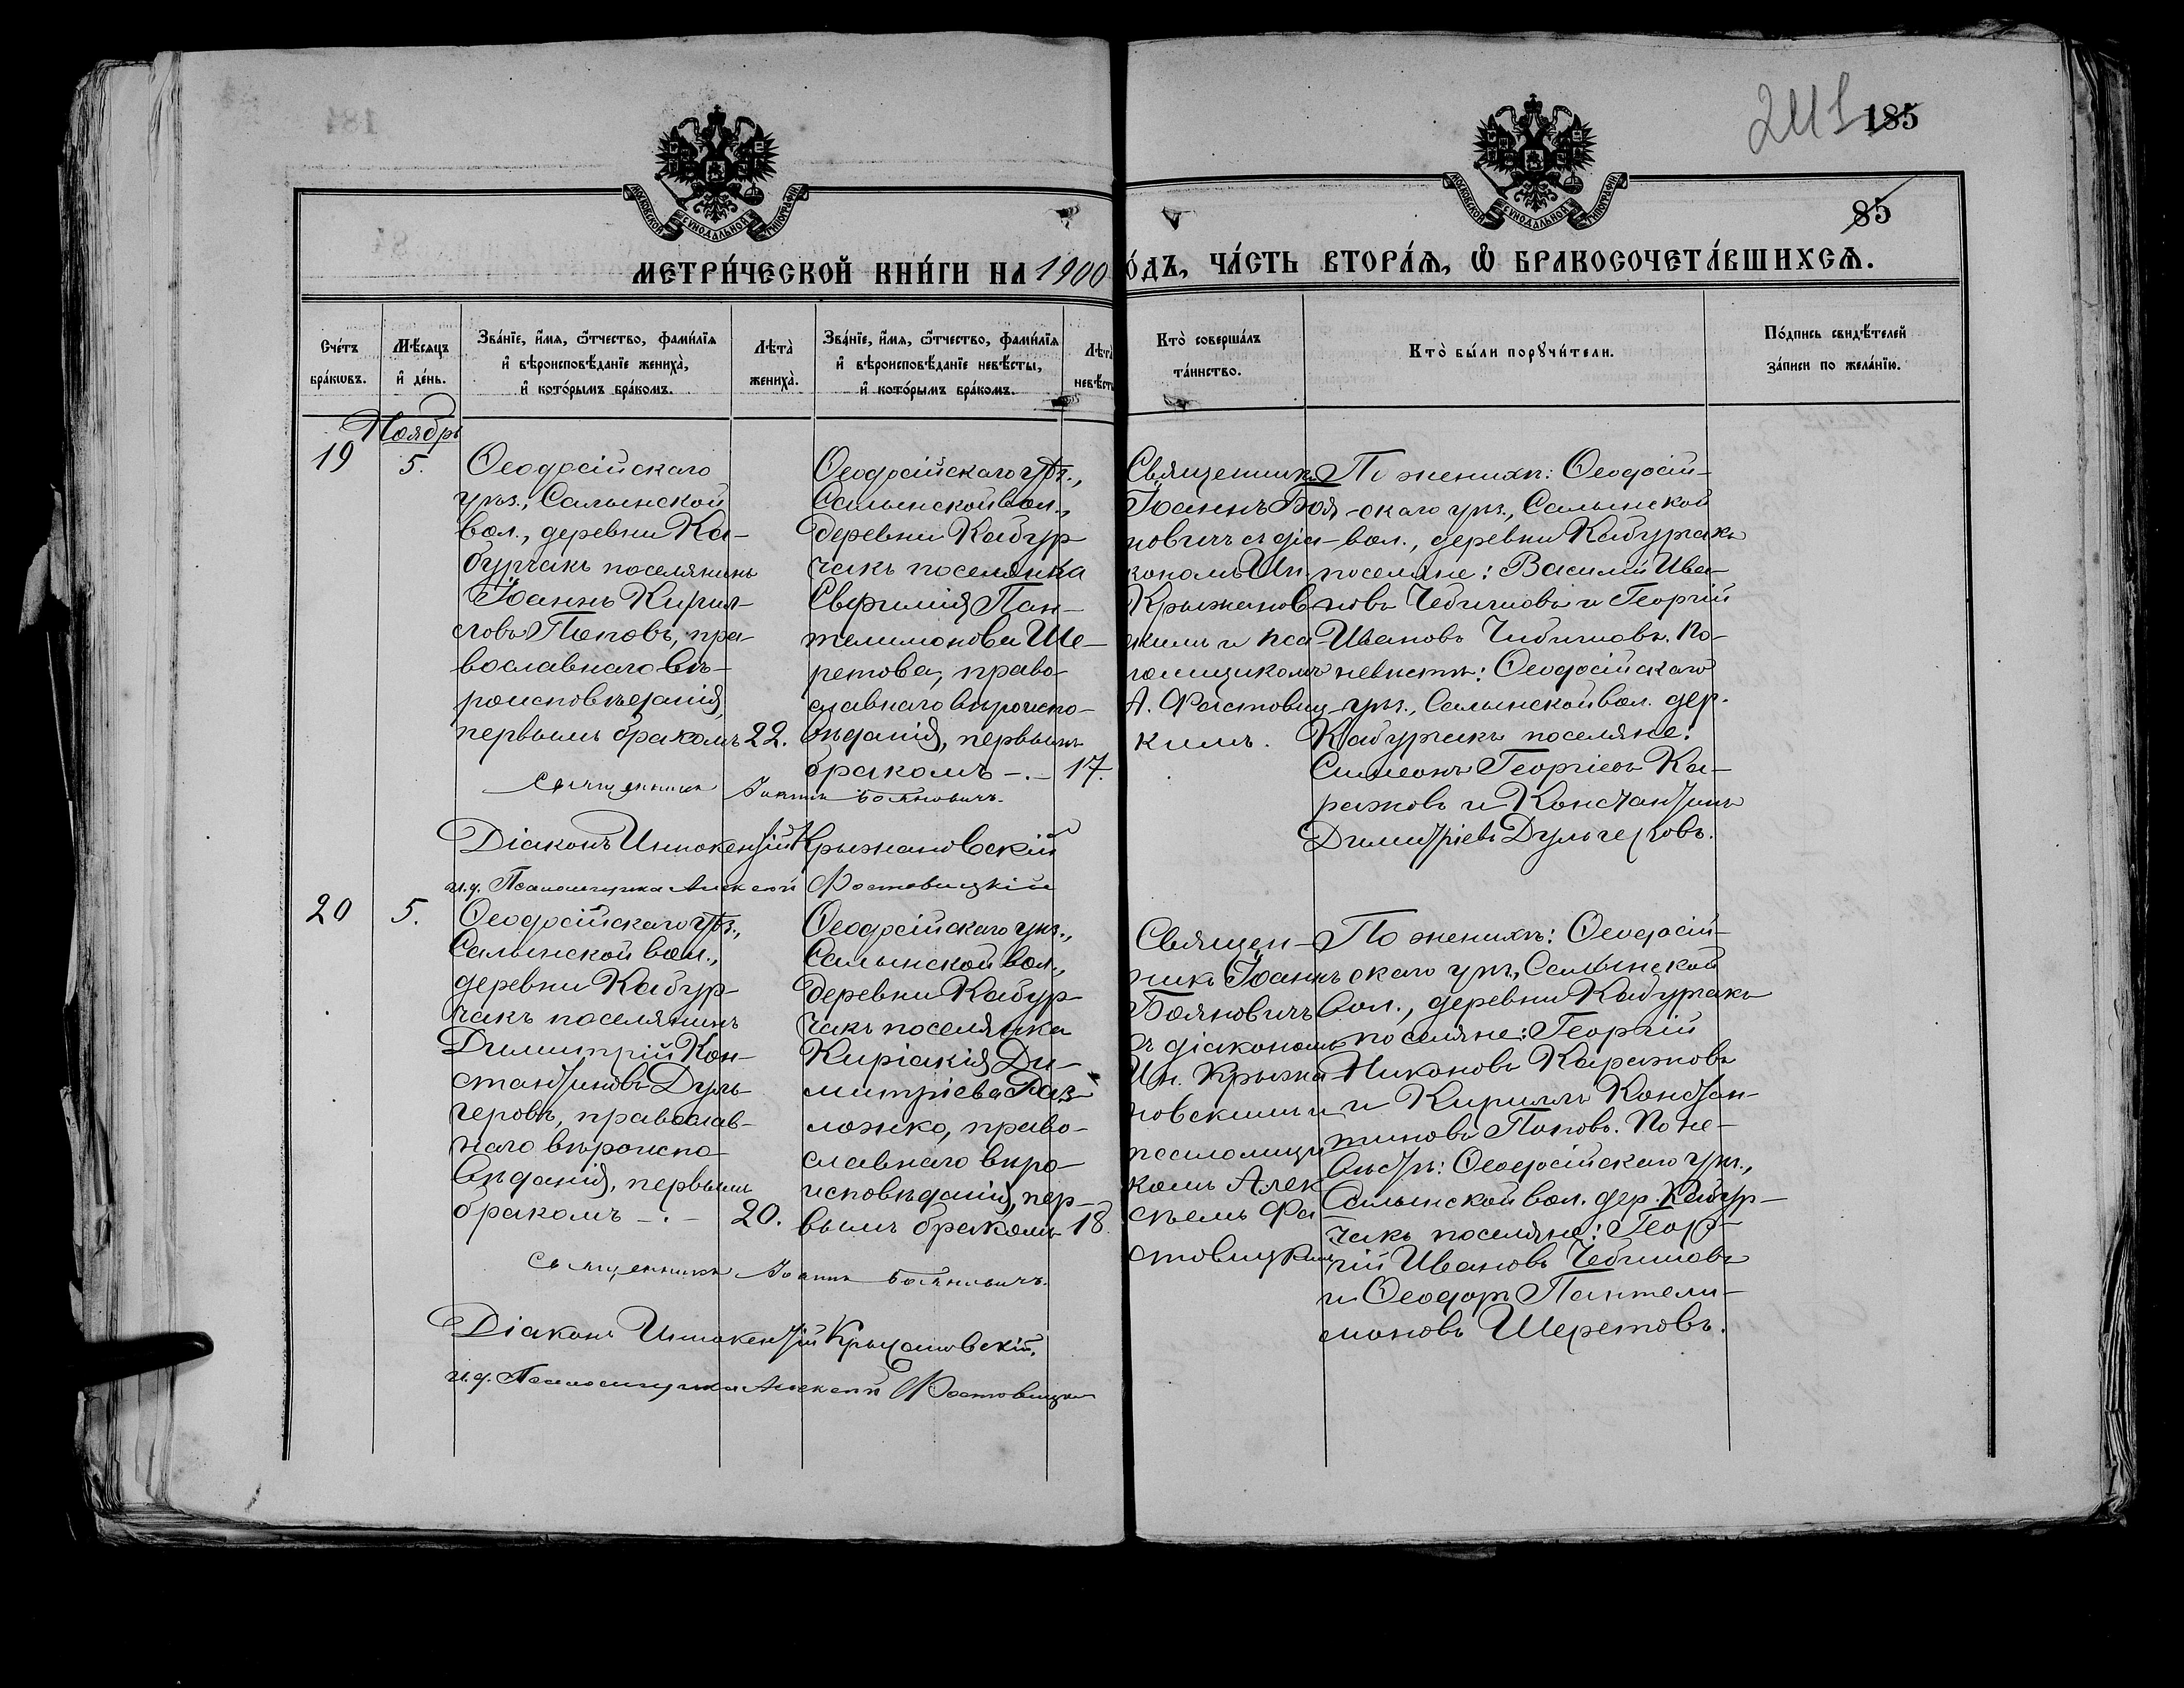 241 185
85
МОСКОВСКОЙ СѴНОДАЛЬНОЙ ТИПОГРАФІИ
МОСКОВСКОЙ СѴНОДАЛЬНОЙ ТИПОГРАФІИ
МЕТРИ́ЧЕСКОЙ КНИ́ГИ НА 1900
О́ДЪ, ЧА́СТЬ ВТОРА́Я, Ѿ БРАКОСОЧЕТА́ВШИХСѦ.
Сче́тъ
бра́кѡвъ.
Мѣ́сяцъ
и҆ де́нь.
Зва́нїе, и҆́мѧ, ѻ҆́тчество, фами́лїѧ
и҆ вѣроисповѣ́данїе жениха̀,
и҆ кото́рымъ бра́комъ.
Лѣта̀
жениха̀.
Зва́нїе, и҆́мѧ, ѻ҆́тчество, фами́лїѧ
и҆ вѣроисповѣ́данїе невѣ́сты,
и҆ кото́рымъ бра́комъ.
Лѣта̀
невѣ́сты
Кто̀ соверша́лъ
та́инство.
Кто̀ бы́ли порꙋчи́тели.
По́дпись свидѣ́телей
за́писи по жела́нїю.
Ноябрь
19
5.
Ѳеодосійскаго
уѣз., Салынской
вол., деревни Ка-
бурчакъ поселянинъ
Іоаннъ Кирил-
ловъ Поповъ, пра-
вославнаго вѣ-
роисповѣданія,
первымъ бракомъ
22.
Ѳеодосійскаго уѣз.,
Салынской вол.,
деревни Кабур-
чакъ поселянка
Евфимія Пан-
телимонова Ше-
ретова, право-
славнаго вѣроиспо-
вѣданія, первымъ
бракомъ -.-
17.
Священникъ
Іоаннъ Боя-
новичъ съ діа-
кономъ Ин.
Крыжанов-
скимъ и пса-
ломщикомъ
А. Фастовиц-
кимъ.
По женихѣ: Ѳеодосій-
скаго уѣз., Салынской
вол., деревни Кабурчакъ
поселяне: Василій Ива-
новъ Чебичиовъ и Георгій
Ивановъ Чибичиовъ. По
невѣстѣ: Ѳеодосійскаго
уѣз., Салынской вол. дер.
Кабурчакъ поселяне:
Симеонъ Георгіевъ Ка-
ражовъ и Константинъ
Димитріевъ Дульгеровъ.
Священникъ Іоаннъ Бояновичъ.
Діаконъ Иннокентій Крыжановскій
и.д. Псаломщика Алексѣй Фастовицкій
20
5.
Ѳеодосійскаго уѣз.,
Салынской вол.,
деревни Кабур-
чакъ поселянинъ
Димитрій Кон-
стантиновъ Дуль-
геровъ, православ-
наго вѣроиспо-
вѣданія, первымъ
бракомъ -.-
20.
Ѳеодосійскаго уѣз.,
Салынской вол.,
деревни Кабур-
чакъ поселянка
Киріакія Ди-
митріева Раз-
ложко, право-
славнаго вѣро-
исповѣданія, пер-
вымъ бракомъ
18.
Священ-
никъ Іоаннъ
Бояновичъ
съ діакономъ
Ин. Крыжа-
новскимъ и
псаломщи-
комъ Алек-
сѣемъ Фа-
стовицкимъ
По женихѣ: Ѳеодосій-
скаго уѣз., Салынской
вол., деревни Кабурчакъ
поселяне: Георгій
Никоновъ Каражовъ
и Кириллъ Констан-
тиновъ Поповъ. По не-
вѣстѣ: Ѳеодосійскаго уѣз.,
Салынской вол. дер. Кабур-
чакъ поселяне: Геор-
гій Ивановъ Чебичиовъ
и Ѳеодоръ Пантели-
моновъ Шеретовъ.
Священникъ Іоаннъ Бояновичъ.
Діаконъ Иннокентій Крыжановскій,
и.д. Псаломщика Алексѣй Фастовицкій